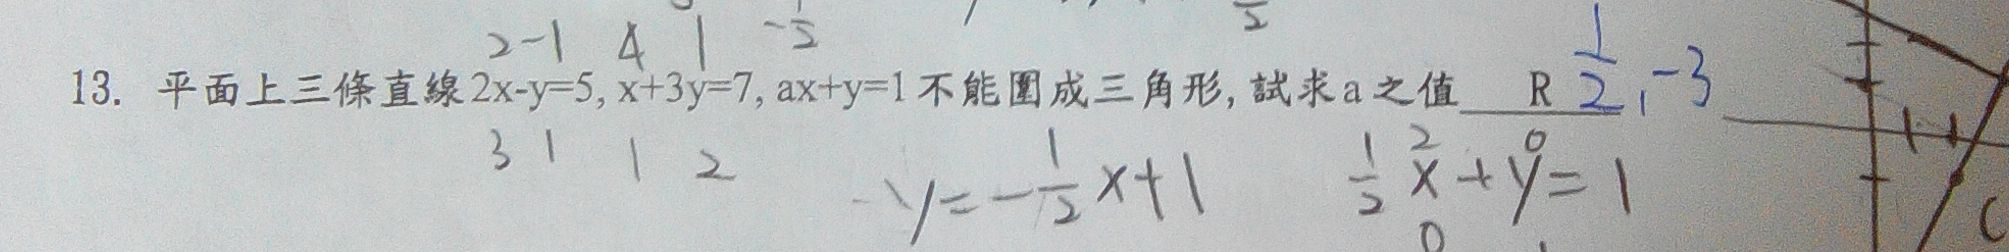 2 -1 4 1 -1/2
13. 平面上三條直線2x-y=5, x+3y=7, ax+y=1不能圍成三角形, 試求a之值 R 1/2, -3
3 1 1 2
y=-1/2x+1 1/2x+y=1
2 0
0